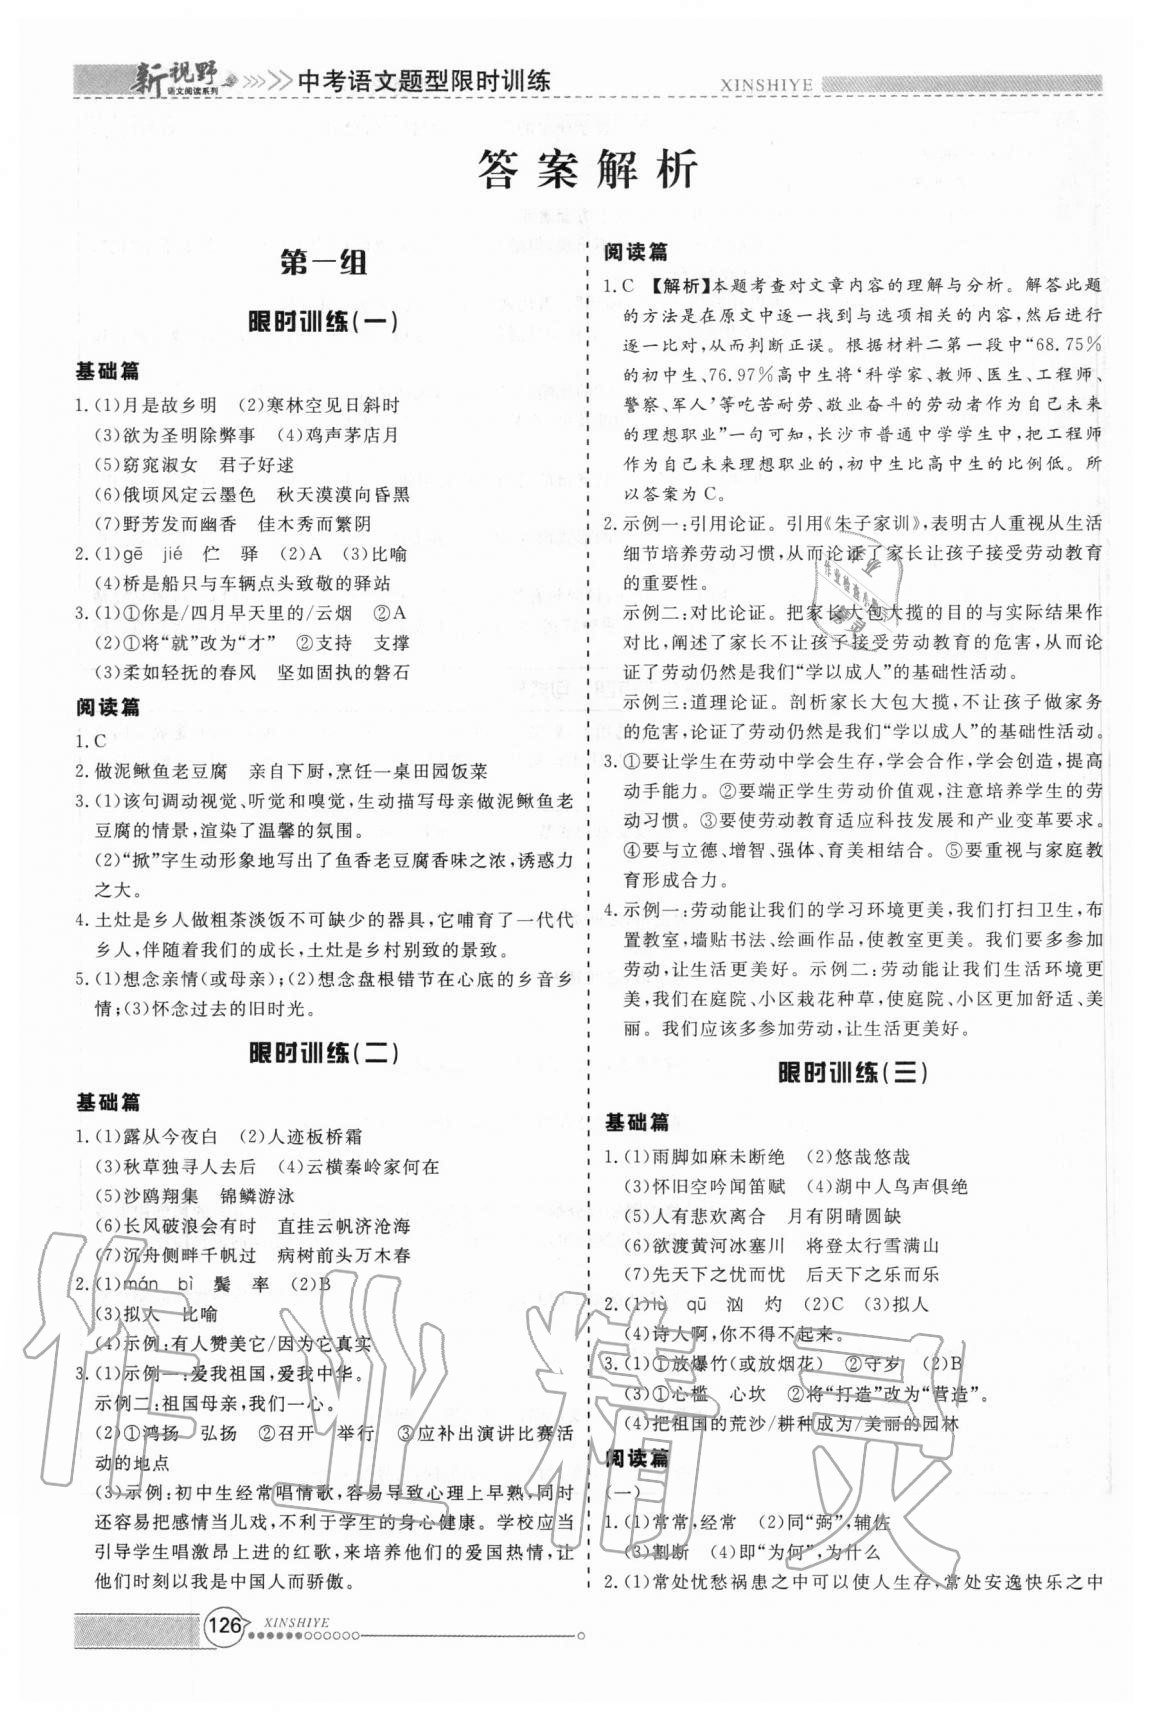 新视野
语文阅读系列
中考语文题型限时训练
XINSHIYE
答案解析
第一组
限时训练(一)
基础篇
1.(1)月是故乡明 (2)寒林空见日斜时
(3)欲为圣明除弊事 (4)鸡声茅店月
(5)窈窕淑女 君子好逑
(6)俄顷风定云墨色 秋天漠漠向昏黑
(7)野芳发而幽香 佳木秀而繁阴
2.(1)gē jié 伫 驿 (2)A (3)比喻
(4)桥是船只与车辆点头致敬的驿站
3.(1)①你是/四月早天里的/云烟 ②A
(2)①将“就”改为“才” ②支持 支撑
(3)柔如轻抚的春风 坚如固执的磐石
阅读篇
1.C
2.做泥鳅鱼老豆腐 亲自下厨,烹饪一桌田园饭菜
3.(1)该句调动视觉、听觉和嗅觉,生动描写母亲做泥鳅鱼老
豆腐的情景,渲染了温馨的氛围。
(2)“掀”字生动形象地写出了鱼香老豆腐香味之浓,诱惑力
之大。
4.土灶是乡人做粗茶淡饭不可缺少的器具,它哺育了一代代
乡人,伴随着我们的成长,土灶是乡村别致的景致。
5.(1)想念亲情(或母亲);(2)想念盘根错节在心底的乡音乡
情;(3)怀念过去的旧时光。
限时训练(二)
基础篇
1.(1)露从今夜白 (2)人迹板桥霜
(3)秋草独寻人去后 (4)云横秦岭家何在
(5)沙鸥翔集 锦鳞游泳
(6)长风破浪会有时 直挂云帆济沧海
(7)沉舟侧畔千帆过 病树前头万木春
2.(1)mán bì 鬓 率 (2)B
(3)拟人 比喻
(4)示例:有人赞美它/因为它真实
3.(1)示例一:爱我祖国,爱我中华。
示例二:祖国母亲,我们一心。
(2)①鸿扬 弘扬 ②召开 举行 ③应补出演讲比赛活
动的地点
(3)示例:初中生经常唱情歌,容易导致心理上早熟,同时
还容易把感情当儿戏,不利于学生的身心健康。学校应当
引导学生唱激昂上进的红歌,来培养他们的爱国热情,让
他们时刻以我是中国人而骄傲。
阅读篇
1.C 【解析】本题考查对文章内容的理解与分析。解答此题
的方法是在原文中逐一找到与选项相关的内容,然后进行
逐一比对,从而判断正误。根据材料二第一段中“68.75%
的初中生、76.97%高中生将‘科学家、教师、医生、工程师、
警察、军人’等吃苦耐劳、敬业奋斗的劳动者作为自己未来
的理想职业”一句可知,长沙市普通中学学生中,把工程师
作为自己未来理想职业的,初中生比高中生的比例低。所
以答案为C。
2.示例一:引用论证。引用《朱子家训》,表明古人重视从生活
细节培养劳动习惯,从而论证了家长让孩子接受劳动教育
的重要性。
示例二:对比论证。把家长大包大揽的目的与实际结果作
对比,阐述了家长不让孩子接受劳动教育的危害,从而论
证了劳动仍然是我们“学以成人”的基础性活动。
示例三:道理论证。剖析家长大包大揽,不让孩子做家务
的危害,论证了劳动仍然是我们“学以成人”的基础性活动。
3.①要让学生在劳动中学会生存,学会合作,学会创造,提高
动手能力。②要端正学生劳动价值观,注意培养学生的劳
动习惯。③要使劳动教育适应科技发展和产业变革要求。
④要与立德、增智、强体、育美相结合。⑤要重视与家庭教
育形成合力。
4.示例一:劳动能让我们的学习环境更美,我们打扫卫生,布
置教室,墙贴书法、绘画作品,使教室更美。我们要多参加
劳动,让生活更美好。示例二:劳动能让我们生活环境更
美,我们在庭院、小区栽花种草,使庭院、小区更加舒适、美
丽。我们应该多参加劳动,让生活更美好。
限时训练(三)
基础篇
1.(1)雨脚如麻未断绝 (2)悠哉悠哉
(3)怀旧空吟闻笛赋 (4)湖中人鸟声俱绝
(5)人有悲欢离合 月有阴晴圆缺
(6)欲渡黄河冰塞川 将登太行雪满山
(7)先天下之忧而忧 后天下之乐而乐
2.(1)lù qū 汹 灼 (2)C (3)拟人
(4)诗人啊,你不得不起来。
3.(1)①放爆竹(或放烟花) ②守岁 (2)B
(3)①心槛 心坎 ②将“打造”改为“营造”。
(4)把祖国的荒沙/耕种成为/美丽的园林
阅读篇
(一)
1.(1)常常,经常 (2)同“弼”,辅佐
(3)割断 (4)即“为何”,为什么
2.(1)常处忧愁祸患之中可以使人生存,常处安逸快乐之中
126
XINSHIYE
作业精灵